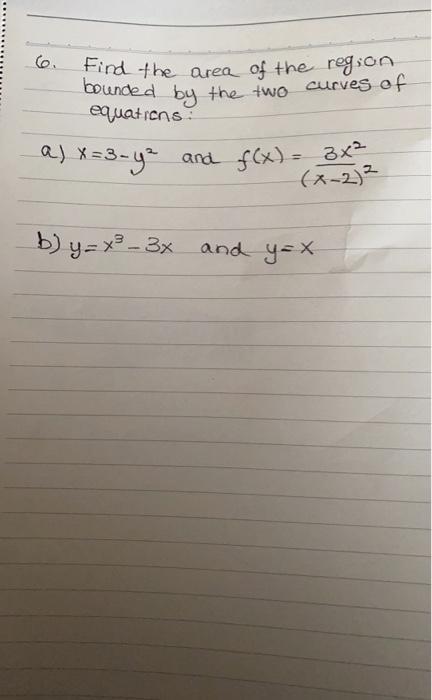 6. Find the area of the region
bounded by the two curves of
equations:
a) x=3-y² and f(x) = 3x²/(x-2)²
b) y=x³-3x and y=x